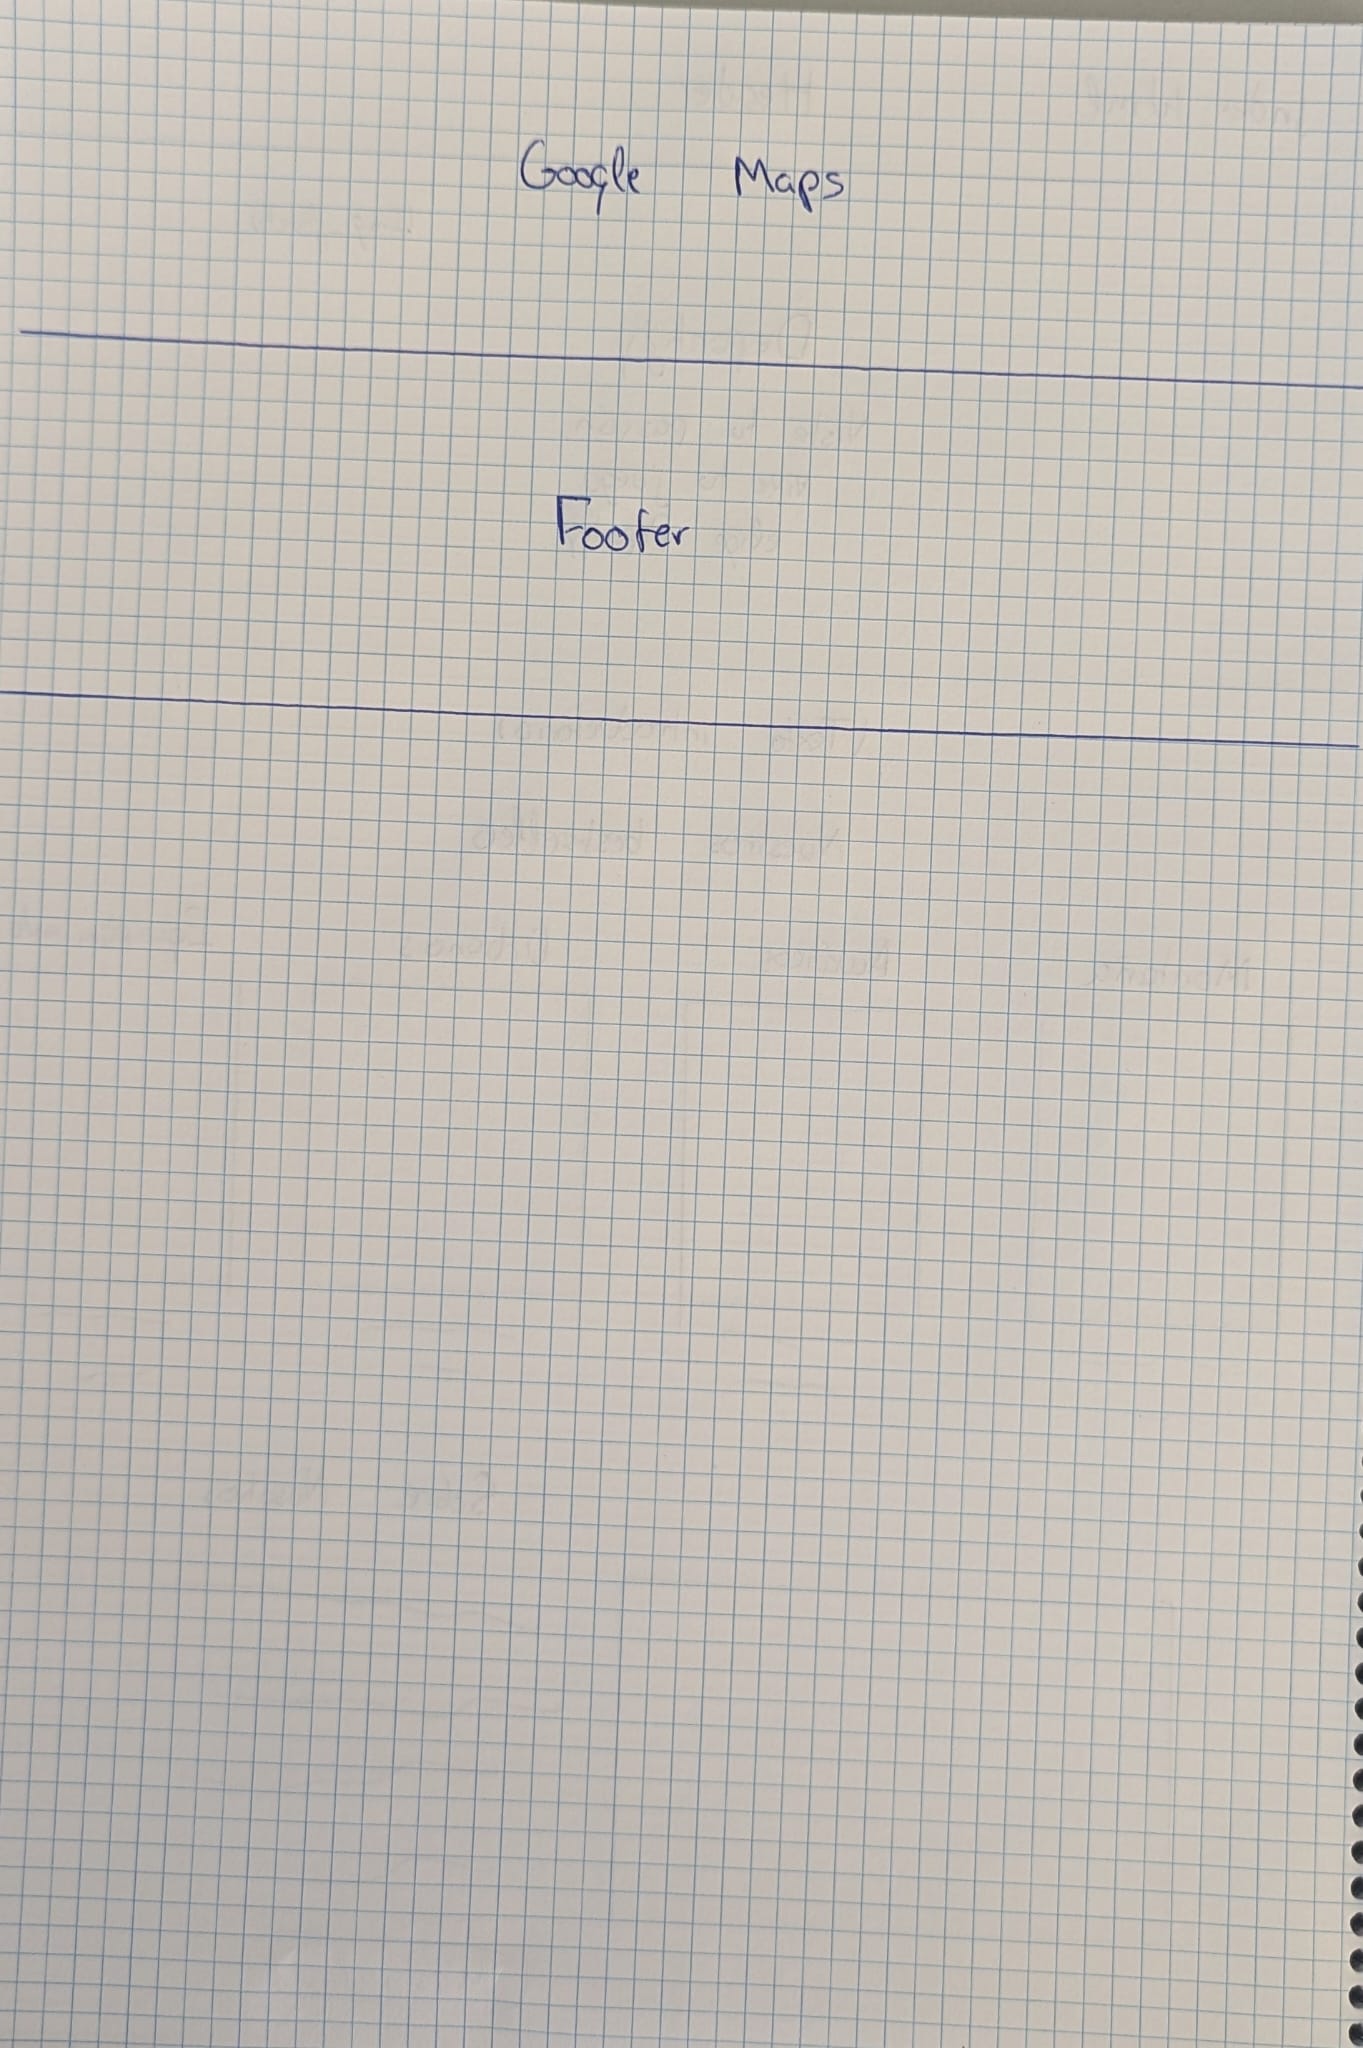 Google Maps
Footer